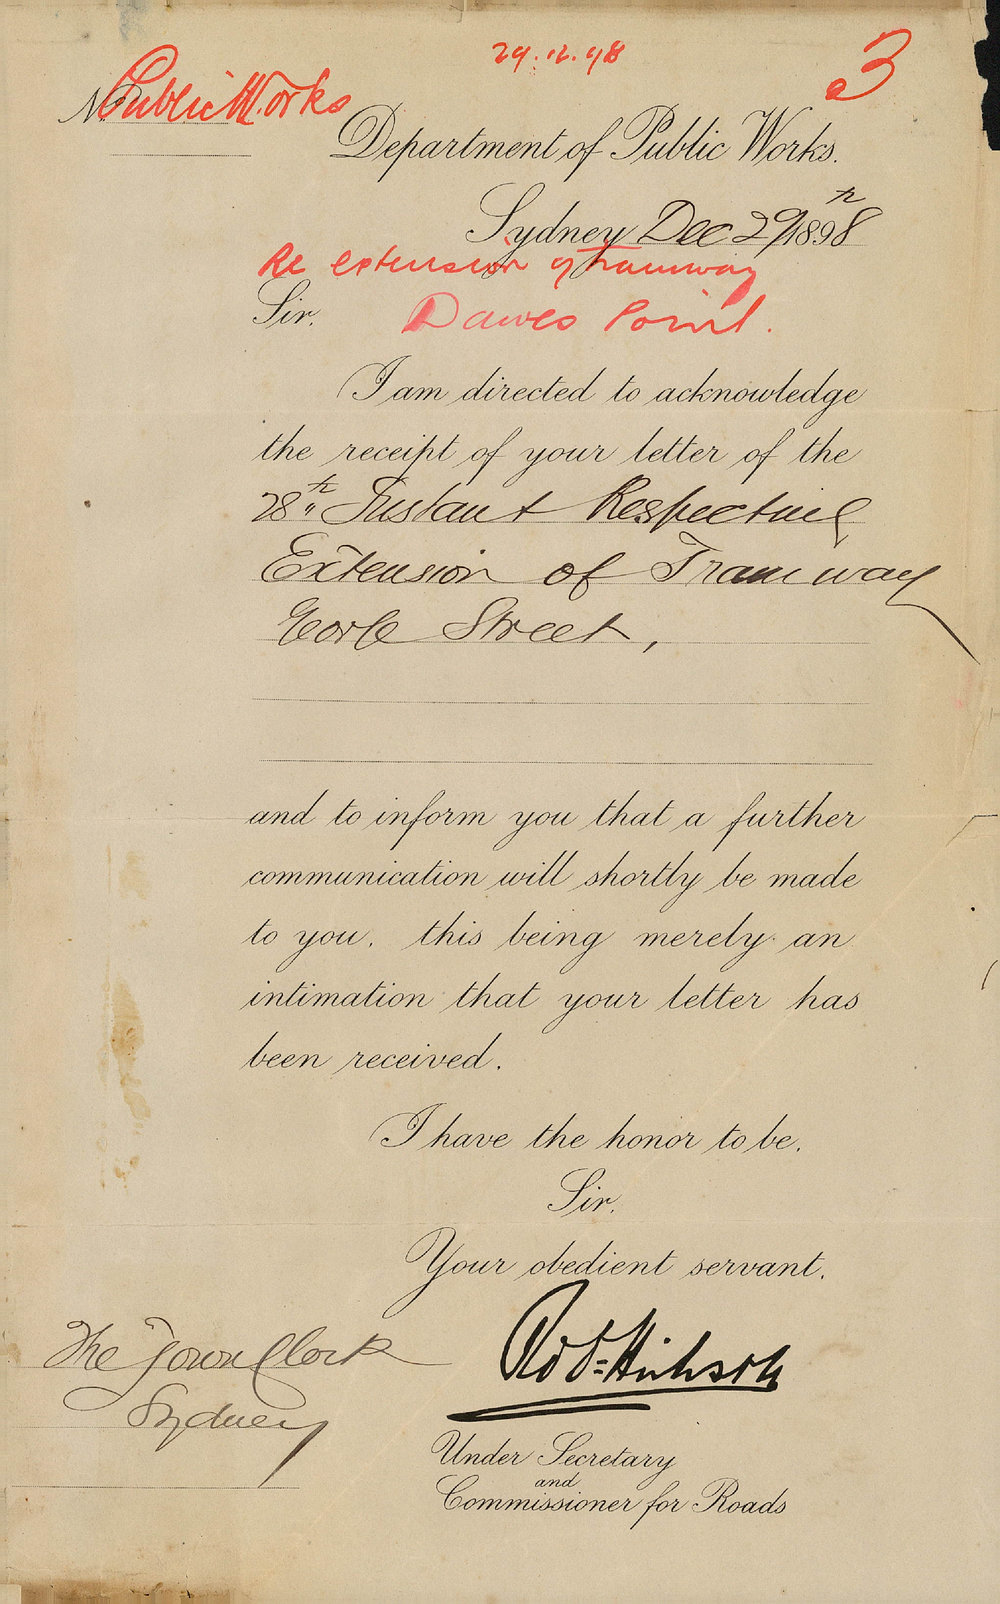 29.12.98
3
No Public Works
Department of Public Works.
Sydney Dec 29th 1898
Re extension of Tramway
Sir, Dawes Point.
I am directed to acknowledge
the receipt of your letter of the
28th Instant Respecting
Extension of Tramway
Street,
and to inform you that a further
communication will shortly be made
to you, this being merely an
intimation that your letter has
been received.
I have the honor to be,
Sir,
Your obedient servant,
Robt Hickson
The Town Clerk
Sydney
Under Secretary
and
Commissioner for Roads